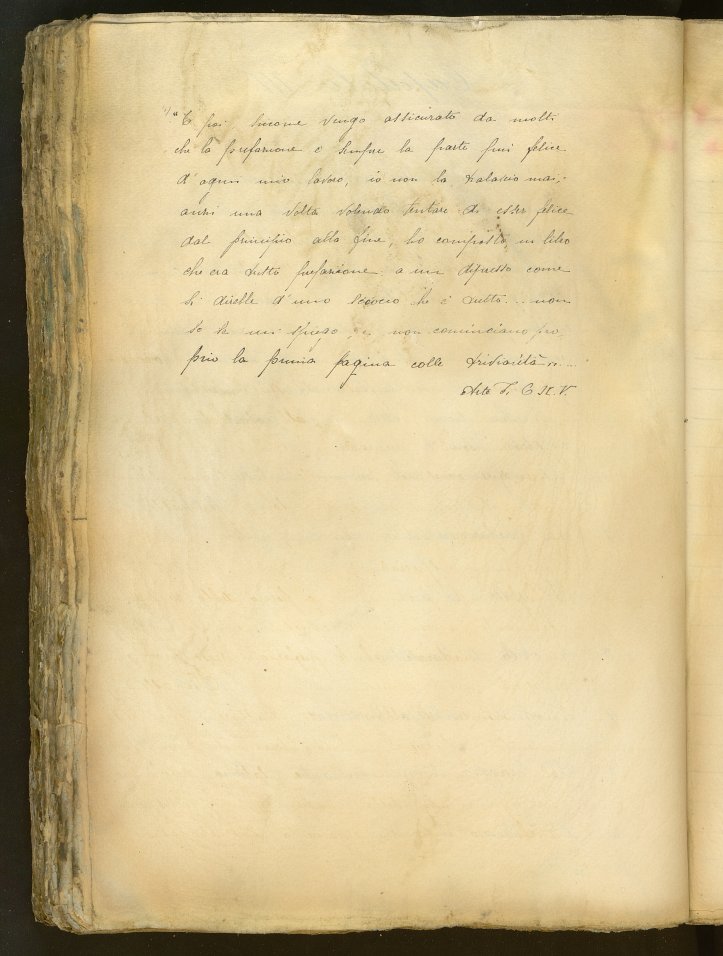 "E poi siccome vengo assicurato da molti
che la prefazione è sempre la parte più felice
d'ogni mio lavoro, io non la tralascio mai;
anzi una volta volendo tentare di esser felice
dal principio alla fine, ho composto un libro
che era tutto prefazione: a un dipresso come
si direbbe d'uno che è tutto... non
so se mi spiego, e non cominciano pro
prio la prima pagina colle trivialità....